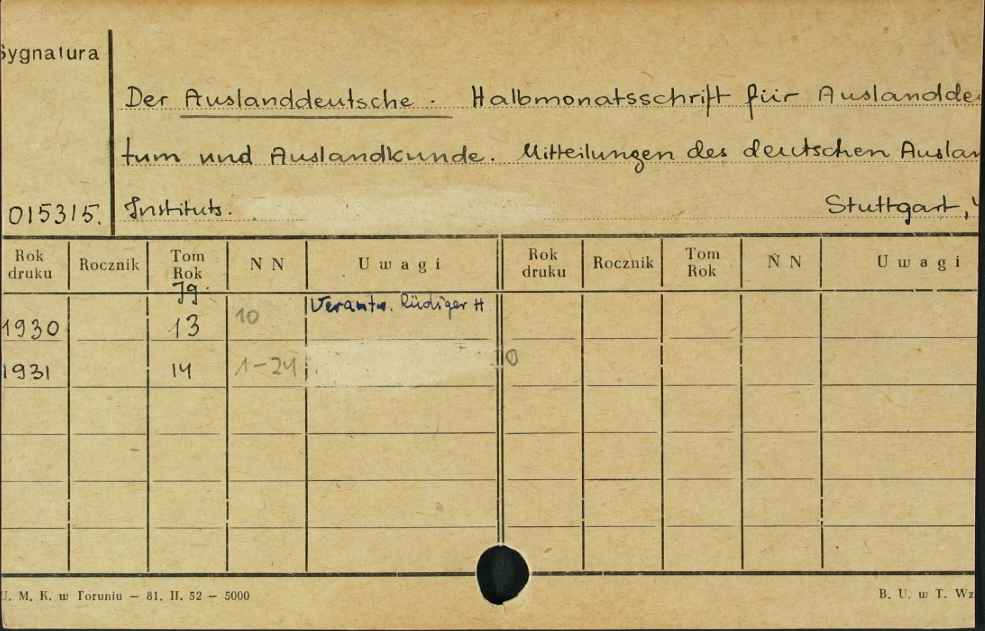 Sygnatura
Der Auslanddeutsche. Halbmonatsschrift für Auslandde
tum und Auslandkunde. Mitteilungen des deutschen Auslan
015315. Instituts. Stuttgart,
Rok druku Rocznik Tom Rok N N Uwagi Rok druku Rocznik Tom Rok N N Uwagi
Jg.
1930 13 10 Verantw. Rüdiger H
1931 14 1-24
U. M. K. w Toruniu — 81. II. 52 — 5000 B. U. w T. Wz